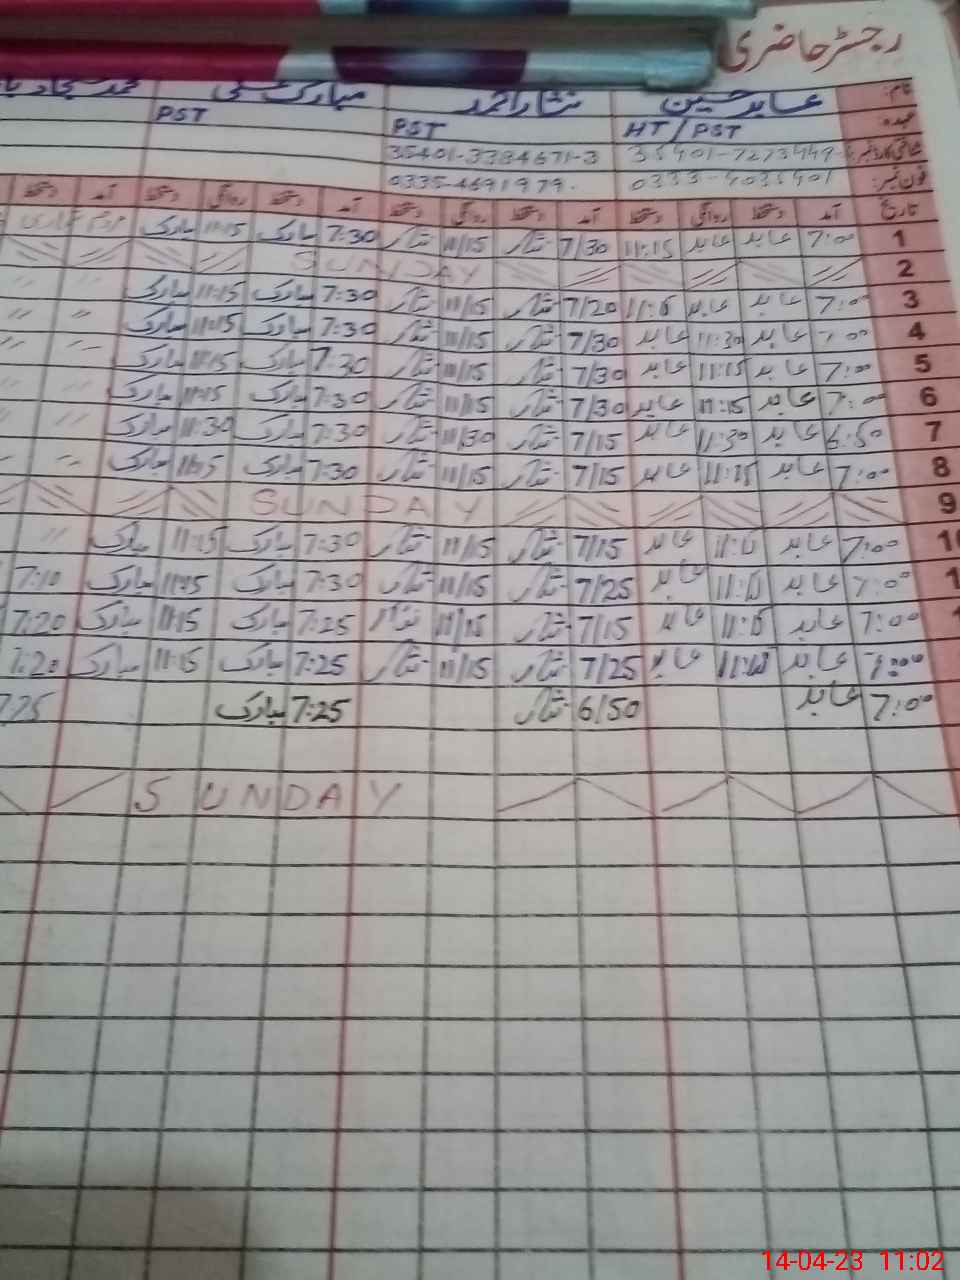 رجسٹر حاضری
نام: عابد حسین نثار احمد مبارک علی محمد سجاد
عہدہ: HT/PST PST PST
شناختی کارڈ نمبر: 35401-3384671-3
فون نمبر: 0333-4035401 0335-4691979
تاریخ آمد دستخط روانگی دستخط آمد دستخط روانگی دستخط آمد دستخط روانگی دستخط آمد دستخط
1 7:00 عابد عابد 11:15 7/30 نثار 11/15 نثار 7:30 مبارک 11:15 مبارک
2 SUNDAY
3 7:00 عابد عابد 11:15 7/20 نثار 11/15 نثار 7:30 مبارک 11:15 مبارک 〃 〃
4 7:00 عابد 11:30 عابد 7/30 نثار 11/15 نثار 7:30 مبارک 11:15 مبارک 〃 〃
5 7:00 عابد 11:15 عابد 7/30 نثار 11/15 نثار 7:30 مبارک 11:15 مبارک 〃 〃
6 7:00 عابد 11:15 عابد 7/30 نثار 11/15 نثار 7:30 مبارک 11:15 مبارک
7 6:50 عابد 11:30 عابد 7/15 نثار 11/30 نثار 7:30 مبارک 11:30 مبارک
8 7:00 عابد 11:15 عابد 7/15 نثار 11/15 نثار 7:30 مبارک 11:15 مبارک 〃 〃
9 SUNDAY
10 7:00 عابد 11:15 عابد 7/15 نثار 11/15 نثار 7:30 مبارک 11:15 مبارک 〃
1 7:00 عابد 11:15 عابد 7/25 نثار 11/15 نثار 7:30 مبارک 11:15 مبارک 7:10
7:00 عابد 11:15 عابد 7/15 نثار 11/15 نثار 7:25 مبارک 11:15 مبارک 7:20
7:00 عابد 11:15 عابد 7/25 نثار 11/15 نثار 7:25 مبارک 11:15 مبارک 7:20
7:00 عابد 6/50 نثار 7:25 مبارک 7:25
SUNDAY
14-04-23 11:02